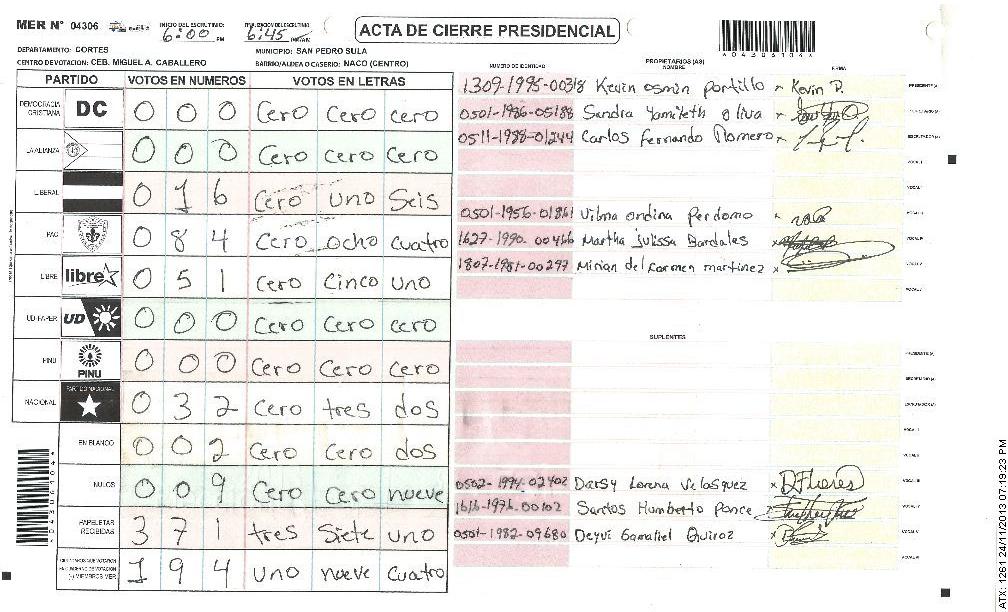 MER N° 04306
INICIO DEL ESCRUTINIO: 6:00 PM
6:45
ACTA DE CIERRE PRESIDENCIAL
DEPARTAMENTO: CORTES
MUNICIPIO: SAN PEDRO SULA
CENTRO DE VOTACION: CEB. MIGUEL A. CABALLERO
BARRIO/ALDEA O CASERIO: NACO (CENTRO)
PARTIDO VOTOS EN NUMEROS VOTOS EN LETRAS
DEMOCRACIA CRISTIANA DC 0 0 0 Cero Cero cero
LA ALIANZA 0 0 0 Cero cero Cero
LIBERAL 0 1 6 Cero uno Seis
PAC 0 8 4 Cero ocho cuatro
LIBRE libre 0 5 1 Cero Cinco uno
UD-FAPER UD 0 0 0 Cero Cero cero
PINU PINU 0 0 0 Cero Cero Cero
NACIONAL PARTIDO NACIONAL 0 3 2 Cero tres dos
EN BLANCO 0 0 2 Cero Cero dos
NULOS 0 0 9 Cero Cero nueve
PAPELETAS RECIBIDAS 3 7 1 tres Siete uno
(+) MIEMBROS MER 1 9 4 uno nueve Cuatro
NUMERO DE IDENTIDAD PROPIETARIOS (AS) NOMBRE FIRMA
1309-1995-00318 Kevin osmin portillo Kevin P. PRESIDENTE (A)
0501-1986-05188 Sandra Yamileth oliva
0511-1988-01244 Carlos Fernando Romero ESCRUTADOR (A)
VOCAL I
VOCAL
0501-1956-01861 Vilma ondina perdomo
1627-1990-00466 Martha julissa Bardales
1807-1981-00297 Mirian del carmen martinez
VOCAL
SUPLENTES
PRESIDENTE (A)
SECRETARIO (A)
ESCRUTADOR (A)
VOCAL I
VOCAL II
0502-1994-02402 Darsy Lorena Velasquez DFlores
1616-1976-00102 Santos Humberto Ponce
0501-1982-09680 Deyvi Gamaliel Quiroz
VOCAL
ATX: 1261 24/11/2013 07:19:23 PM